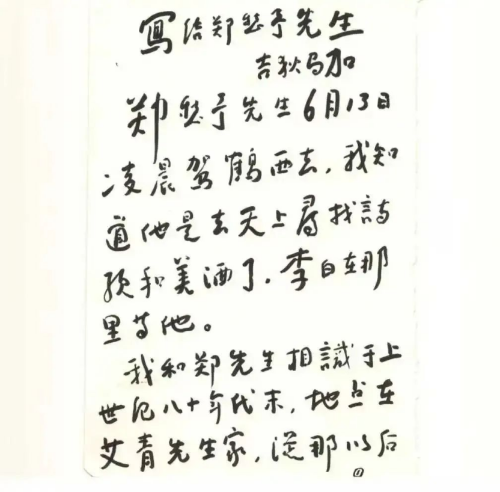 寫给郑愁予先生
吉狄马加
郑愁予先生6月13日
凌晨驾鹤西去，我知
道他是去天上尋找詩
歌和美酒了，李白在那
里等他。
我和郑先生相識于上
世纪八十年代末，地点在
艾青先生家，從那以后
①